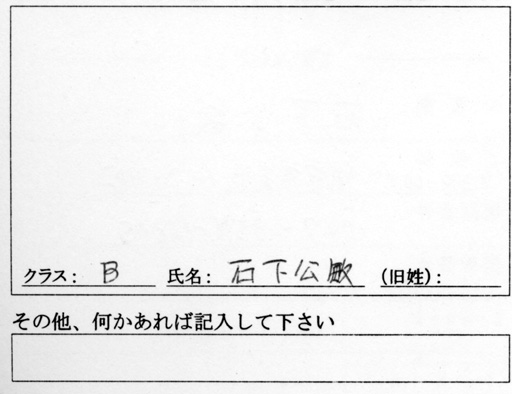 クラス: B 氏名: 石下公敏 (旧姓):
その他、何かあれば記入して下さい